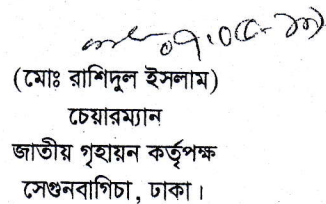 (মোঃ রাশিদুল ইসলাম)
চেয়ারম্যান
জাতীয় গৃহায়ন কর্তৃপক্ষ
সেগুনবাগিচা, ঢাকা।